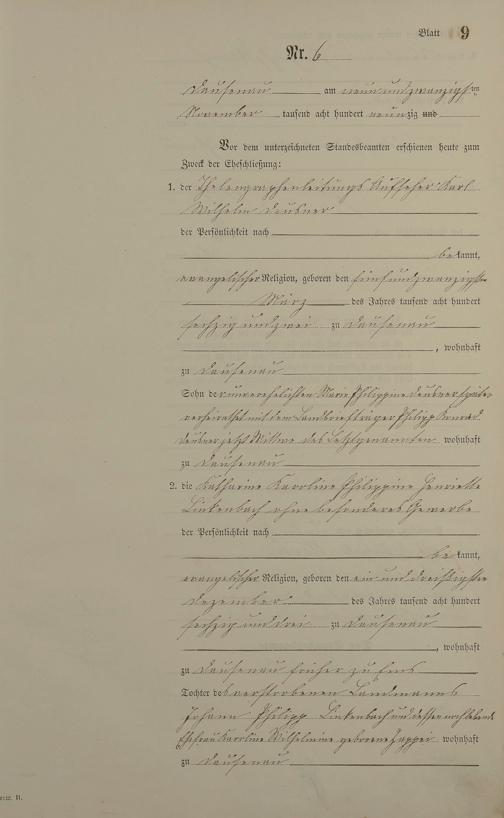 Blatt 9
Nr. 6
Dausenau am neunundzwanzigsten
November tausend acht hundert neunzig und
Vor dem unterzeichneten Standesbeamten erschienen heute zum
Zweck der Eheschließung:
1. der Thelengraphenleitungs Aufseher Karl
Wilhelm Deusner
der Persönlichkeit nach
be kannt,
evangelischer Religion, geboren den fünfundzwanzigsten
März des Jahres tausend acht hundert
sechzig und zwei zu Dausenau
, wohnhaft
zu Dausenau
Sohn der unverehelichten Marie Philippine Deusner später
verheirathet mit dem Landbriefträger Philipp Konrad
Deusner jetzt Wittwe des Letztgenannten wohnhaft
zu Dausenau
2. die Katharine Karoline Philippine Henriette
Linkenbach ohne besonderes Gewerbe
der Persönlichkeit nach
be kannt,
evangelischer Religion, geboren den ein und dreißigsten
Dezember des Jahres tausend acht hundert
sechzig und drei zu Dausenau
, wohnhaft
zu Dausenau früher zu Ems
Tochter des verstorbenen Landmanns
Johann Philipp Linkenbach und dessen
Ehefrau Karoline Wilhelmine geborene wohnhaft
zu Dausenau